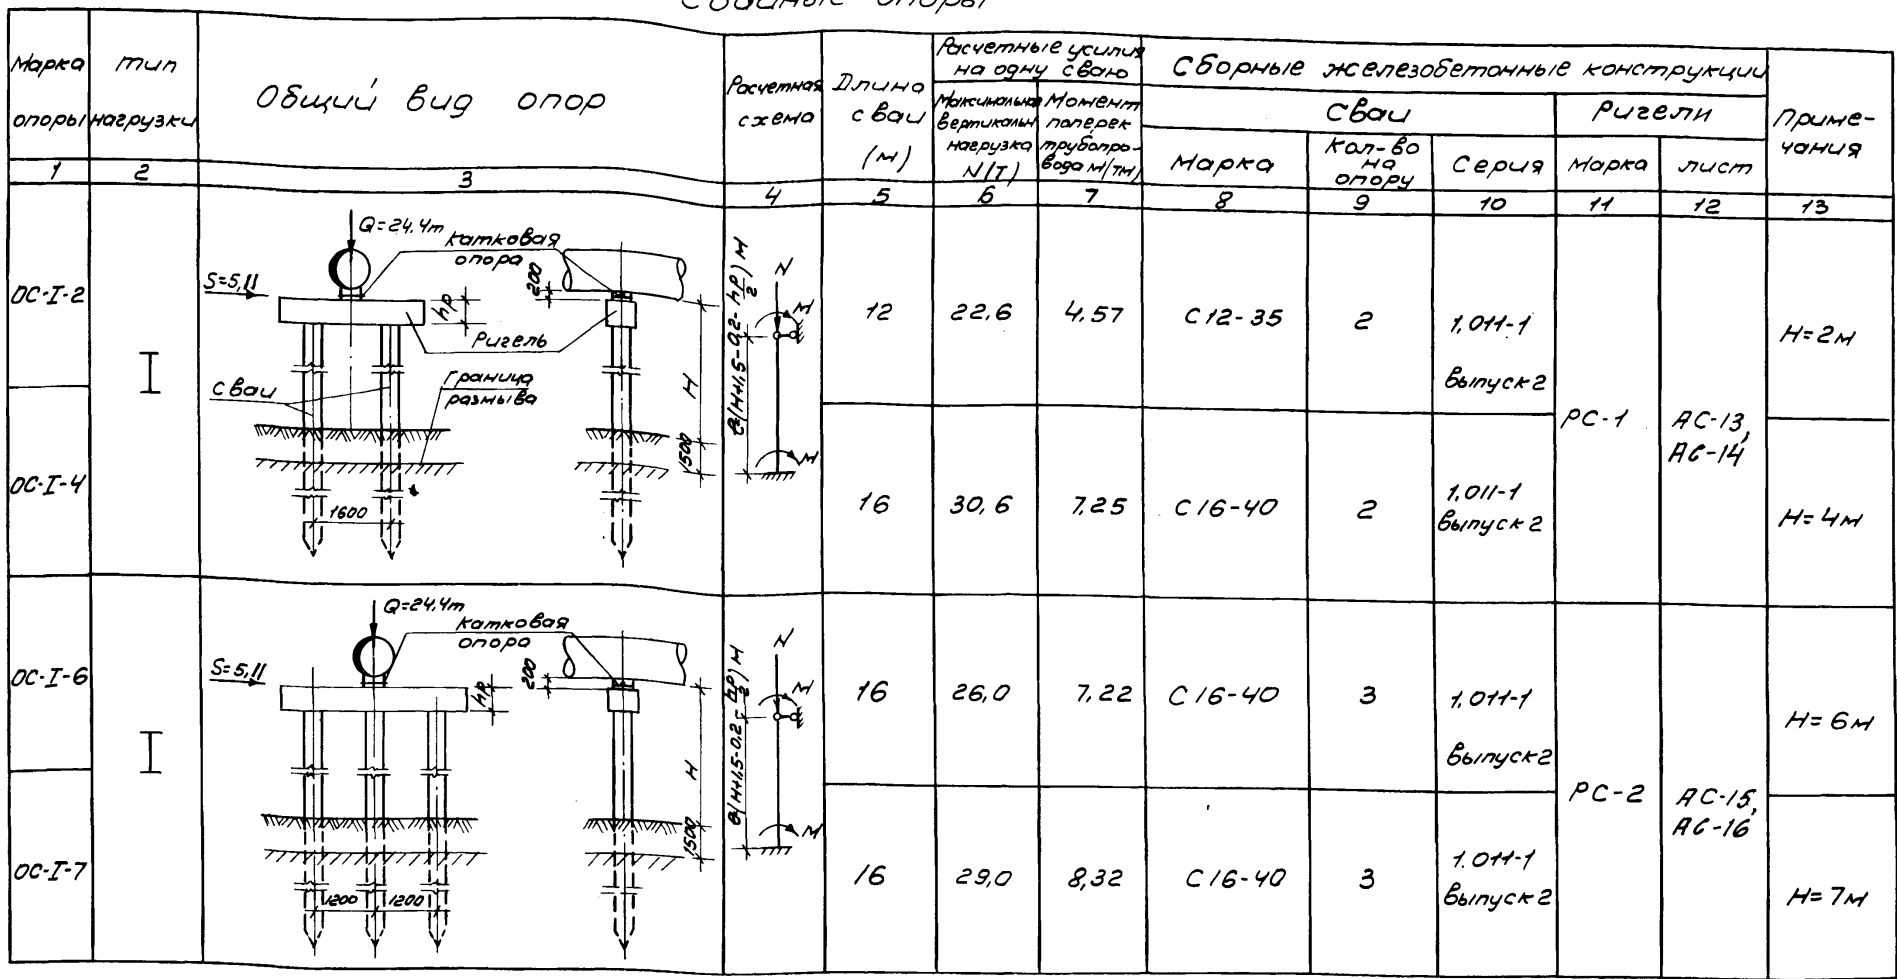 Свайные опоры
Марка опоры
Тип нагрузки
Общий вид опор
Расчетная схема
Длина сваи (м)
Расчетные усилия на одну сваю
Максимальна вертикальн нагрузка N(Т)
Момент поперек трубопровода М(тм)
Сборные железобетонные конструкции
Сваи
Марка
Кол-во на опору
Серия
Ригели
Марка
лист
Примечания
1 2 3 4 5 6 7 8 9 10 11 12 13
ОС-I-2
I
Q=24.4т
катковая опора
S=5,11
200
hр
Ригель
Сваи
Граница размыва
H
1500
1600
ℓ=(H+1,5-0,2-hр/2) м
N
M
M
12 22,6 4,57 С12-35 2 1,011-1 выпуск 2
H=2м
РС-1
АС-13, АС-14
ОС-I-4
16 30,6 7,25 С16-40 2 1,011-1 выпуск 2
H=4м
ОС-I-6
I
Q=24.4т
катковая опора
S=5,11
200
hр
H
1500
1200 1200
N
M
M
16 26,0 7,22 С16-40 3 1,011-1 выпуск 2
H=6м
РС-2
АС-15, АС-16
ОС-I-7
16 29,0 8,32 С16-40 3 1.011-1 выпуск 2
H=7м